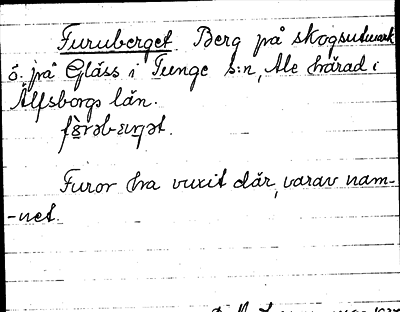 Furuberget. Berg på skogsutmark
ö. på Gläss i Tunge s:n, Ale härad i
Älfsborgs län.

Furor ha vuxit där, varav nam-
-net.